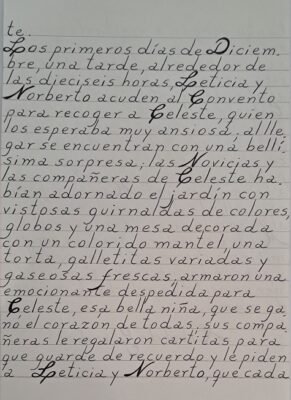 te.
Los primeros días de Diciem-
bre, una tarde, alrededor de
las dieciseis horas, Leticia y
Norberto acuden al Convento
para recoger a Celeste, quien
los esperaba muy ansiosa, al lle-
gar se encuentran con una belli-
sima sorpresa; las Novicias y
las compañeras de Celeste ha-
bían adornado el jardín con
vistosas guirnaldas de colores,
globos y una mesa decorada
con un colorido mantel, una
torta, galletitas variadas y
gaseosas frescas, armaron una
emocionante despedida para
Celeste, esa bella niña, que se ga-
no el corazon de todas, sus compa-
ñeras le regalaron cartitas para
que guarde de recuerdo y le piden
a Leticia y Norberto, que cada